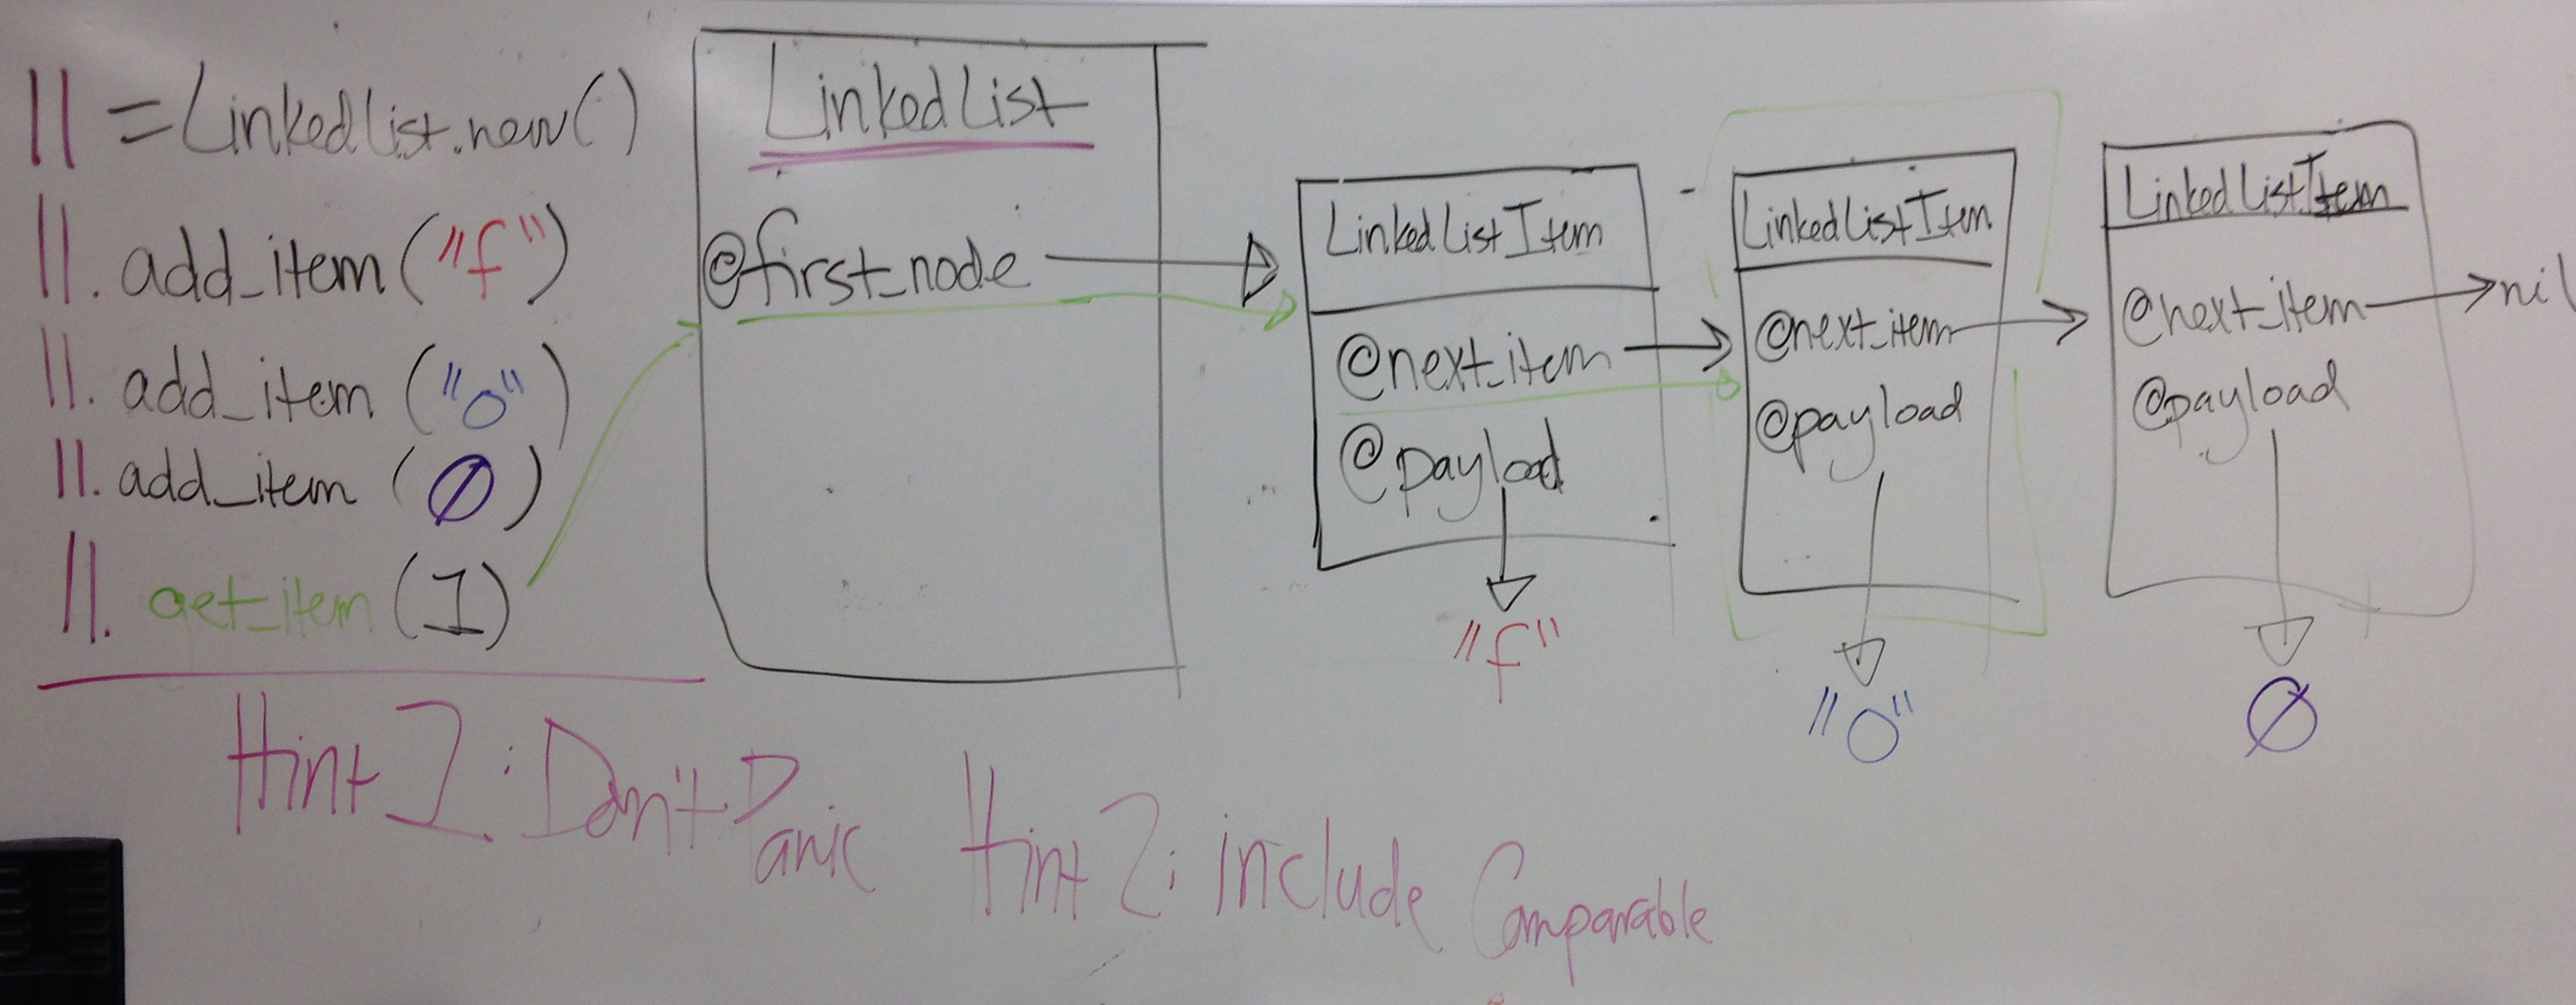 ll = LinkedList.new()
ll. add_item ("f")
ll. add_item ("o")
ll. add_item (Ø)
ll. get_item (1)
LinkedList
@first_node
LinkedListItem
@next_item
@payload
"f"
LinkedListItem
@next_item
@payload
"o"
LinkedListItem
@next_item
@payload
nil
Ø
Hint 1: Don't Panic
Hint 2: include Comparable